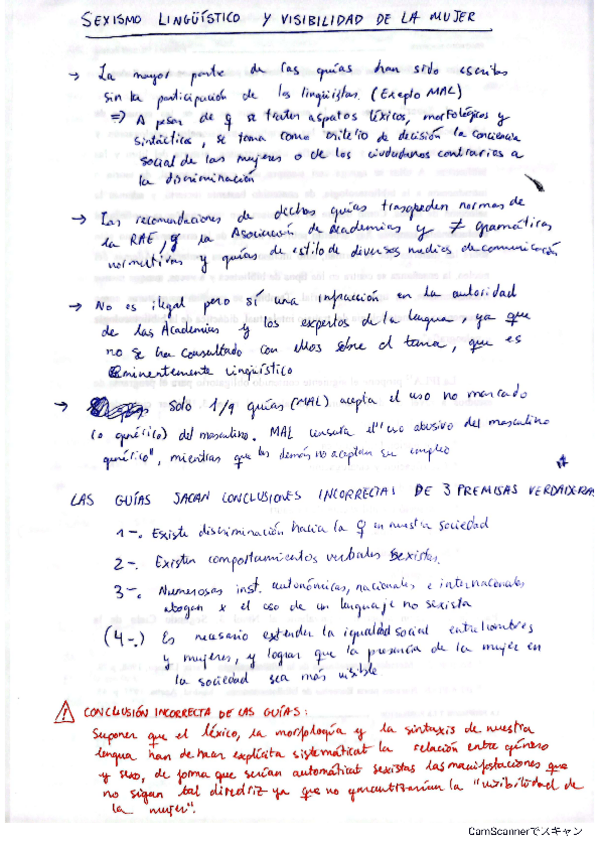 SEXISMO LINGÜÍSTICO Y VISIBILIDAD DE LA MUJER
→ La mayor parte de las guías han sido escritas
sin la participación de los lingüistas. (Exepto MAL)
⇒) A pesar de q se traten aspatos léxicos, morfológicos y
sintácticos, se toma como criterio de decisión la conciencia
social de las mujeres o de los ciudadanos contrarios a
la discriminación
→ Las recomendaciones de dichas guías trasgreden normas de
la RAE, y la Asociación de Academias y ≠ gramáticas
normativas y guías de estilo de diversos medios de comunicación
→ No es ilegal pero sí una infracción en la autoridad
de las Academias y los expertos de la lengua, ya que
no se ha consultado con ellos sobre el tema, que es
eminentemente lingüístico
→ Solo 1/9 guías (MAL) acepta el uso no marcado
(o genérico) del masculino. MAL censura el "uso abusivo del masculino
genérico", mientras que los demás no aceptan su empleo
LAS GUÍAS SACAN CONCLUSIONES INCORRECTAS DE 3 PREMISAS VERDADERAS
1-. Existe discriminación hacia la ♀ en nuestra sociedad
2-. Existen comportamientos verbales sexistas.
3-. Numerosas inst. autonómicas, nacionales e internacionales
abogan x el uso de un lenguaje no sexista
(4-.) Es necesario extender la igualdad social entre hombres
y mujeres, y lograr que la presencia de la mujer en
la sociedad sea más visible
⚠ CONCLUSIÓN INCORRECTA DE LAS GUÍAS:
Suponer que el léxico, la morfología y la sintaxis de nuestra
lengua han de hacer explícita sistemáticat la relación entre género
y sexo, de forma que serían automáticat sexistas las manifestaciones que
no sigan tal directriz ya que no garantizarían la "visibilidad de
la mujer".
CamScannerでスキャン